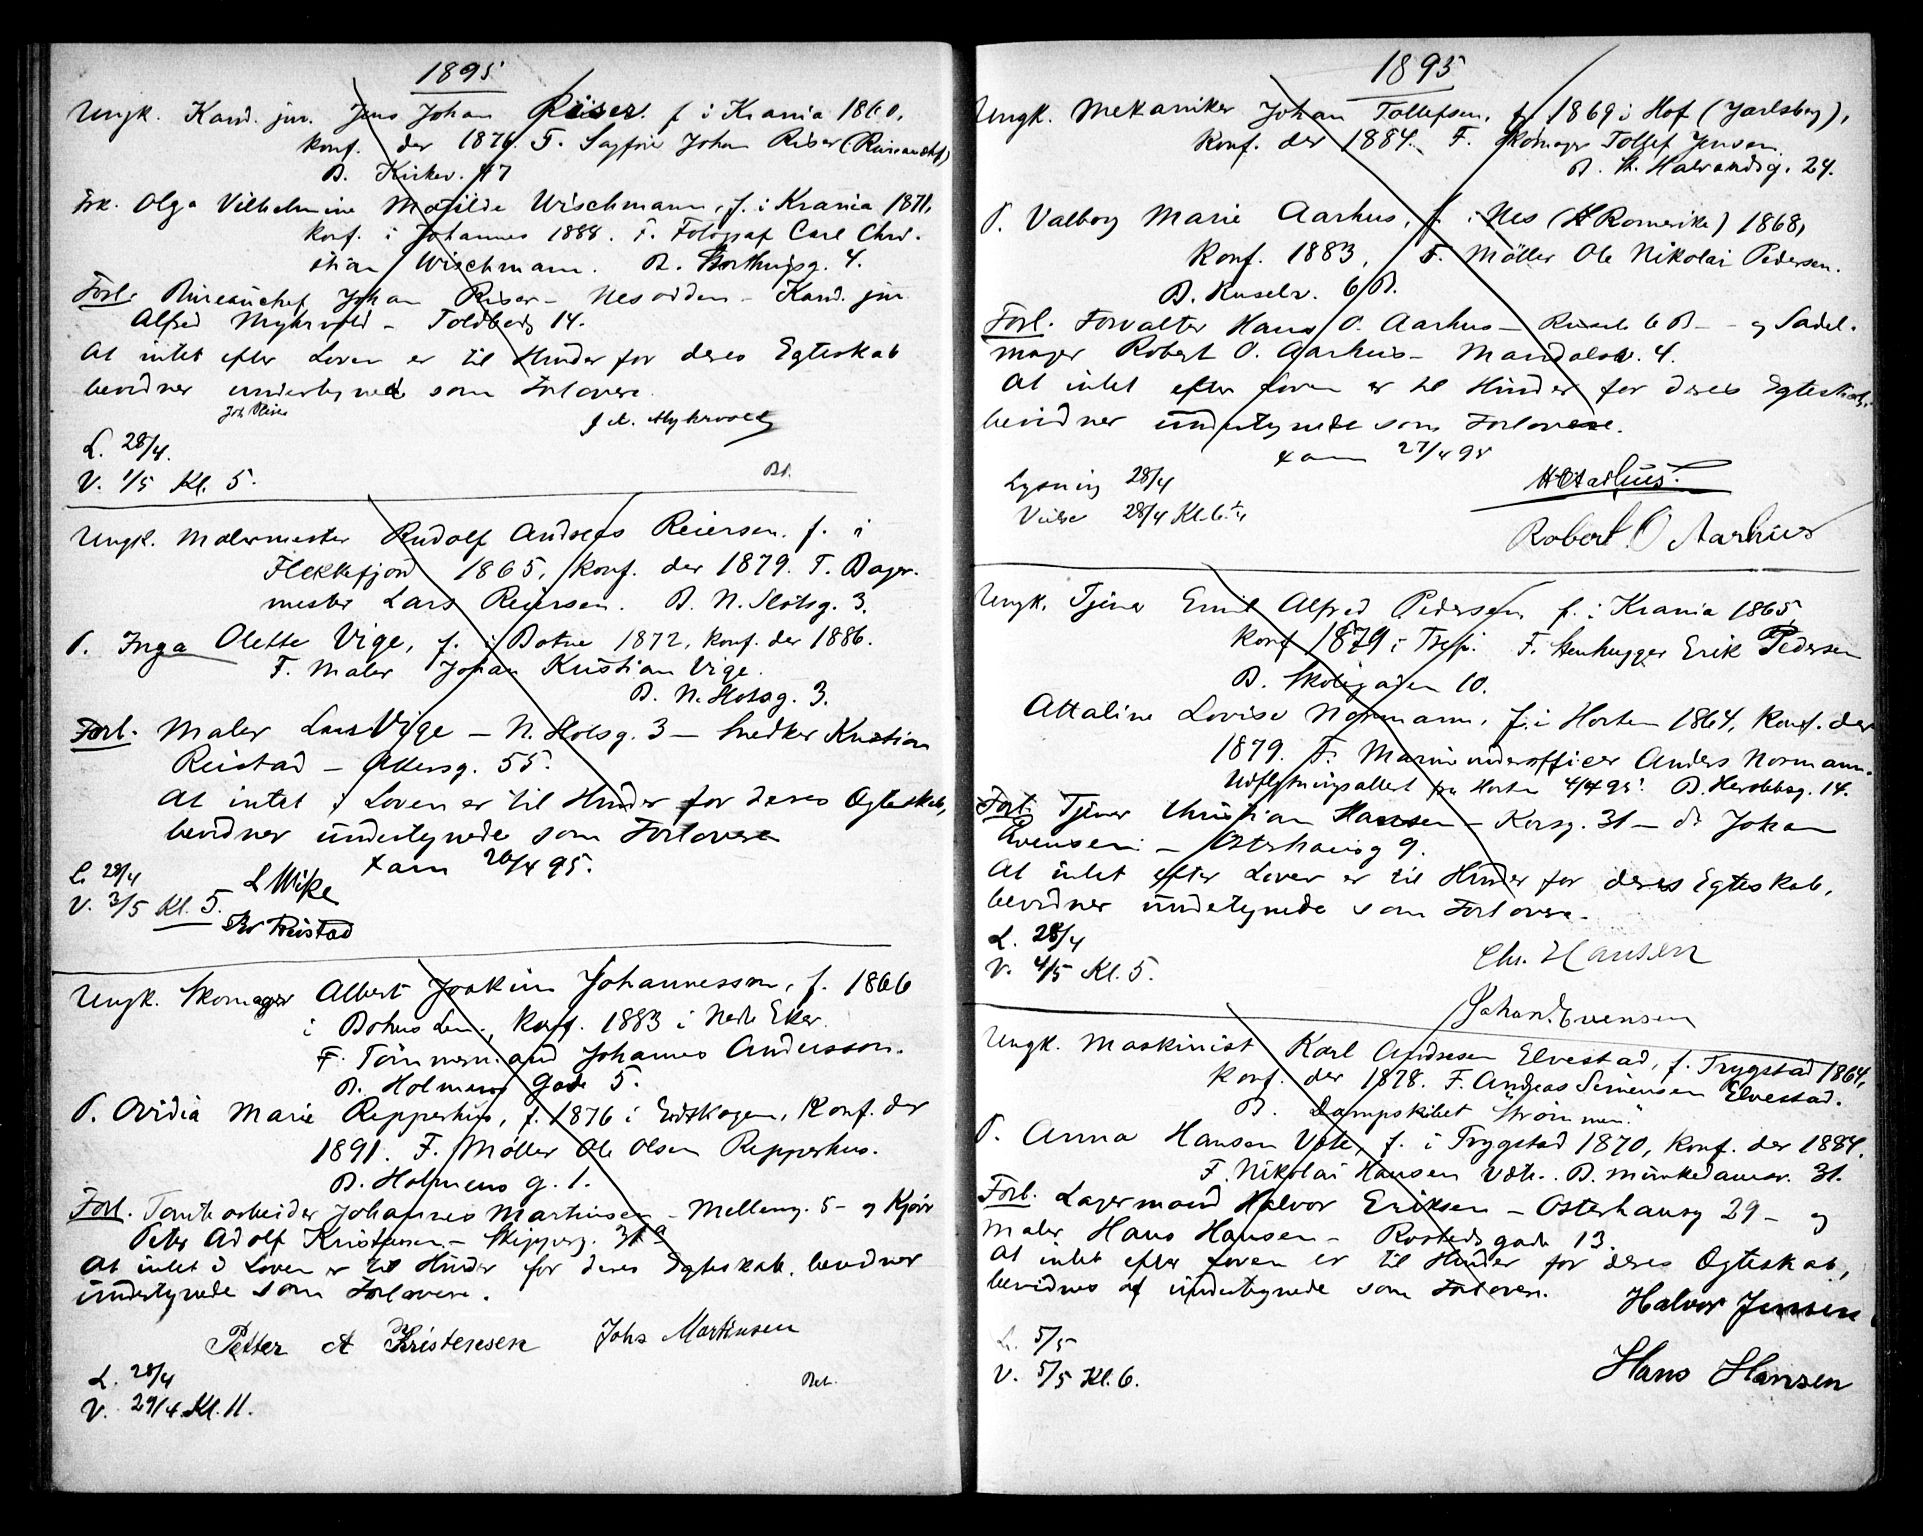 1895
Ungk. Kand. jur. Jens Johan Riser. f. i Krania 1860,
konf. der 1876. F. Johan Riser (Bureauchef)
B. Kirkev. 47
Frk. Olga Vilhelmine Matilde Wischmann, f. i Krania 1871,
konf. i Johannes 1888. F. Fotograf Carl Chri-
stian Wischmann. B. Storthingsg. 4.
Forl. Bureauchef Johan Riser - Nesodden - Kand. jur.
Alfred Myhrvold - Toldbodg 14.
At intet efter Loven er til Hinder for deres Egteskab
bevidner undertegnede som Forlovere.
Joh Riser
J A. Myhrvold
L. 28/4.
V. 1/5 Kl. 5.
Bt.
Ungk. Malermester Rudolf Andreas Reiersen. f. i
Flekkefjord 1865, konf. der 1879. F. Bager-
mester Lars Reiersen. B. N. Slotsg. 3.
P. Inga Olette Vige, f. i Botne 1872, konf. der 1886.
F. Maler Johan Kristian Vige.
B. N. Slotsg. 3.
Forl. Maler Lars Vige - N. Slotsg. 3 - Snedker Kristian
Reistad - Akersg. 55.
At intet i Loven er til Hinder for deres Egteskab,
bevidner undertegnede som Forlovere
Xania 20/4 95.
L. 28/4 L Wike
V. 3/5 Kl. 5. Kr Reistad
Ungk. Skomager Albert Joakim Johannesson, f. 1866
i Bohus Len, konf. 1883 i Nedre Eker.
F. Tømmermand Johannes Andersson.
B. Holmens Gade 5.
P. Ovidia Marie Repperhus, f. 1876 i Eidskogen, Konf. der
1891. F. Møller Ole Olsen Repperhus.
B. Holmens g. 1.
Forl. Tomtearbeider Johannes Martinsen - Mellemg. 5 - og Kjører
Peter Adolf Kristensen - Skipperg. 31 a
At intet i Loven er til Hinder for deres Egteskab, bevidner
undertegnede som Forlovere.
Petter A Kristensen Johs Martinsen
L. 28/4
V. 29/4 Kl. 11.
Bet.
1895
Ungk. Mekaniker Johan Tollefsen, f. 1869 i Hof (Jarlsberg),
Konf. der 1884. F. Skomager Tollef Jensen.
B. St. Halvardsg. 24.
P. Valborg Marie Aarhus, f. i Nes (Romerike) 1868,
Konf. 1883, F. Møller Ole Nikolai Pedersen.
B. Ruselv. 6 B.
Forl. Forvalter Hans O. Aarhus - Rusel. 6 B - og Sadel-
mager Robert O. Aarhus - Mandalsv. 4.
At intet efter Loven er til Hinder for deres Egteskab,
bevidner undertegnede som Forlovere.
Xania 27/4 95
Lysning 28/4
H O Aarhus.
Vielse 28/4 Kl. 6 1/4
Robert O Aarhus
Ungk. Tjener Emil Alfred Pedersen f. i Krania 1865,
Konf 1879 i Trefi. F. Stenhugger Erik Pedersen
B. Skolegaden 10.
Attaline Lovise Normann, f. i Horten 1864, Konf. der
1879. F. Marineunderofficer Anders Normann.
Udflytningsattest fra Horten 4/4 95. B. Herslebsg. 14.
Forl. Tjener Christian Hansen - Korsg. 31 - do Johan
Evensen - Osterhausg 9.
At intet efter Loven er til Hinder for deres Egteskab,
bevidner undertegnede som Forlovere.
L. 28/4
V. 4/5 Kl. 5.
Chr. Hansen
Johan Evensen
Ungk. Maskinist Karl Andresen Elvestad, f. Trygstad 1864,
Konf. der 1878. F. Andreas Simensen Elvestad.
B. Dampskibet "Strømmen".
P. Anna Hansen Vote, f. i Trygstad 1870, konf. der 1884.
F. Nikolai Hansen Vote. B. Munkedamsv. 31.
Forl. Lagermand Halvor Eriksen - Osterhausg 29 - og
Maler Hans Hansen - Rostedsgade 13.
At intet efter Loven er til Hinder for deres Egteskab,
bevidnes af undertegnede som Forlovere.
Halvor Jensen
L. 5/5
V. 5/5 Kl. 6.
Hans Hansen